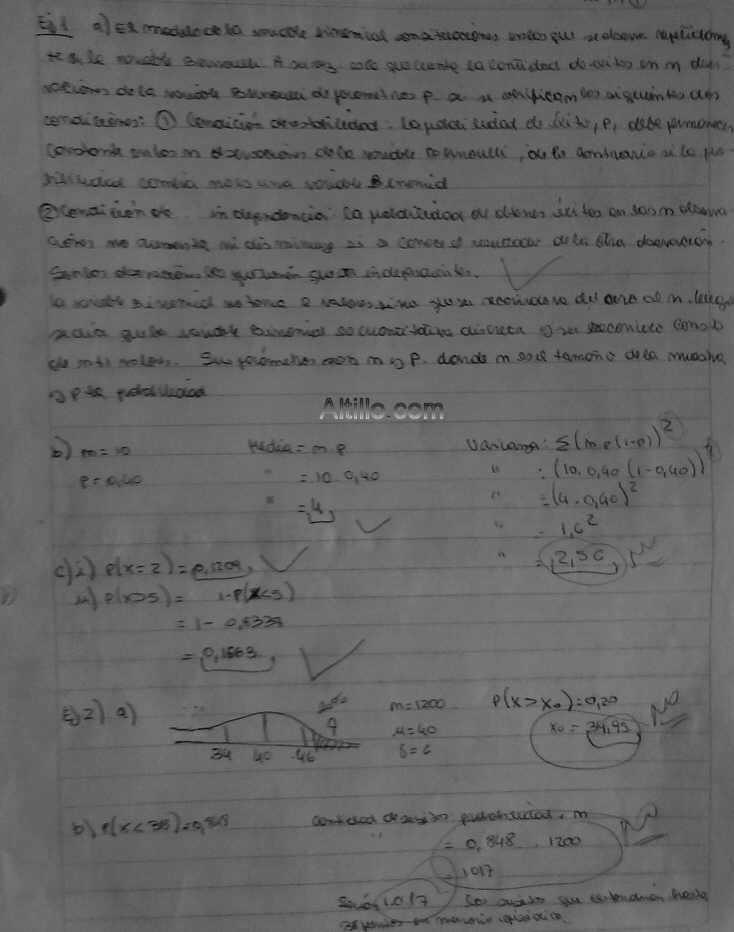 Ej 1 a) El modelo de la variable binomial son situaciones en las que se observa repetidamen
te a la variable Bernoulli. A su vez, es la que cuenta la cantidad de éxitos en n obser
vaciones de la variable Bernoulli de parámetros P. si se verifican las siguientes dos
condiciones: ① Condición de estabilidad: La probabilidad de éxito, P, debe permanecer
constante en las n observaciones de la variable Bernoulli, de lo contrario si la pro
babilidad cambia no es una variable Binomial
② Condición de independencia: La probabilidad de obtener éxitos en las n observa
ciones no aumenta ni disminuye si se conoce el resultado de la otra observación.
Son las observaciones las que tienen que ser independientes.
La variable Binomial no toma 2 valores sino que su recorrido va del cero al n. Luego
se dice que la variable Binomial es cuantitativa discreta y su recorrido consta
de n+1 valores. Sus parámetros son n y P. donde n es el tamaño de la muestra
y P la probabilidad
Altillo.com
b) n = 10 Media = n.p Varianza: Σ(n.p(1-p))²
P = 0,40 " = 10.0,40 " : (10.0,40 (1-0,40))²
" = 4 " = (4.0,40)²
" = 1,6²
" = 2,56 No
c) i) P(x=2) = 0,1209
ii) P(x>5) = 1-P(x<5)
= 1 - 0,8338
= 0,1663
Ej 2) a) n=1200 P(x>x₀)=0,20
μ=40 x₀ = 34,95 No
34 40 46 S=6
b) P(x<38)=0,848 cantidad de = probabilidad . n
= 0,848 . 1200 No
= 1017
Serán 1017 los que hasta
38